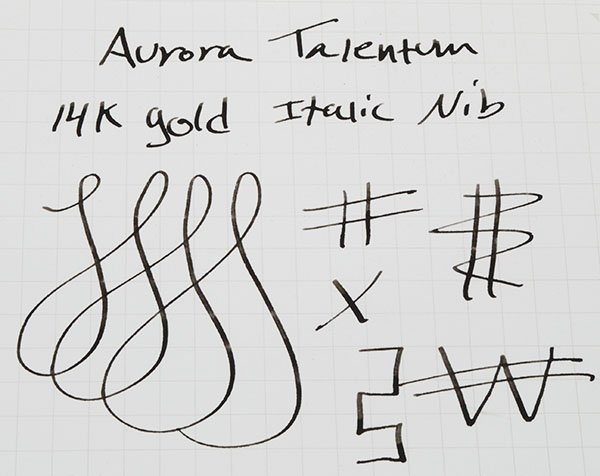 Aurora Talentum
14K gold Italic Nib
#
$
X
₩